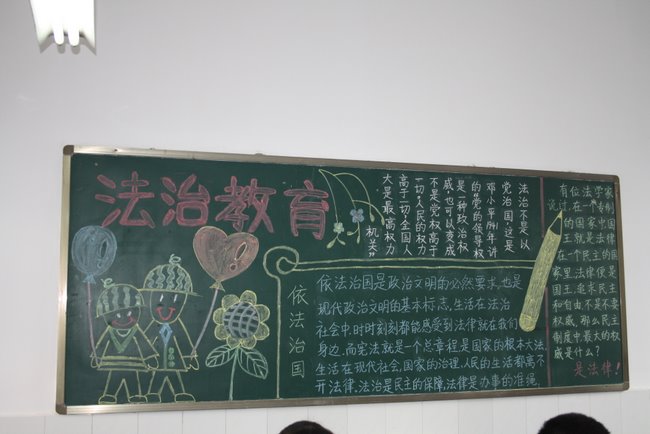 法治教育
法治不是以
党治国,这是
邓小平41年讲
的"党的领导权
是一种政治权
威,也可以变成
不是党权高于
一切,人民的权力
高于一切全国人
大是最高权力
机关"
依法治国
依法治国是政治文明的必然要求,也是
现代政治文明的基本标志,生活在法治
社会中,时时刻刻都能感受到法律就在我们
身边,而宪法就是一个总章程,是国家的根本大法,
生活在现代社会,国家的治理,人民的生活都离不
开法律,法治是民主的保障,法律是办事的准绳.
有位法学家
说过,在一个专制
的国家中国
王就是法律
在一个民主的国
家里,法律便是
国王,追求民主
和自由,不是不要
权威,那么民主
制度中最大的权
威是什么?
是法律!